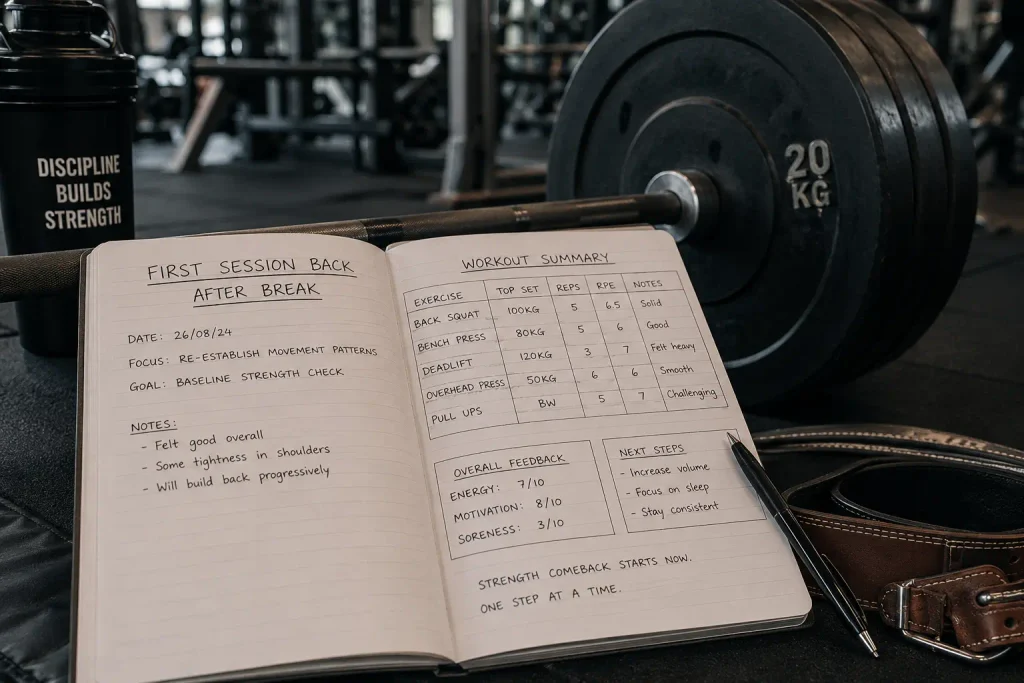 DISCIPLINE
BUILDS
STRENGTH
20
KG
FIRST SESSION BACK
AFTER BREAK
DATE: 26/08/24
FOCUS: RE-ESTABLISH MOVEMENT PATTERNS
GOAL: BASELINE STRENGTH CHECK
NOTES:
- Felt good overall
- Some tightness in shoulders
- Will build back progressively
WORKOUT SUMMARY
EXERCISE TOP SET REPS RPE NOTES
BACK SQUAT 100KG 5 6.5 Solid
BENCH PRESS 80KG 5 6 Good
DEADLIFT 120KG 3 7 Felt heavy
OVERHEAD PRESS 50KG 6 6 Smooth
PULL UPS BW 5 7 Challenging
OVERALL FEEDBACK
ENERGY: 7/10
MOTIVATION: 8/10
SORENESS: 3/10
NEXT STEPS
- Increase volume
- Focus on sleep
- Stay consistent
STRENGTH COMEBACK STARTS NOW.
ONE STEP AT A TIME.